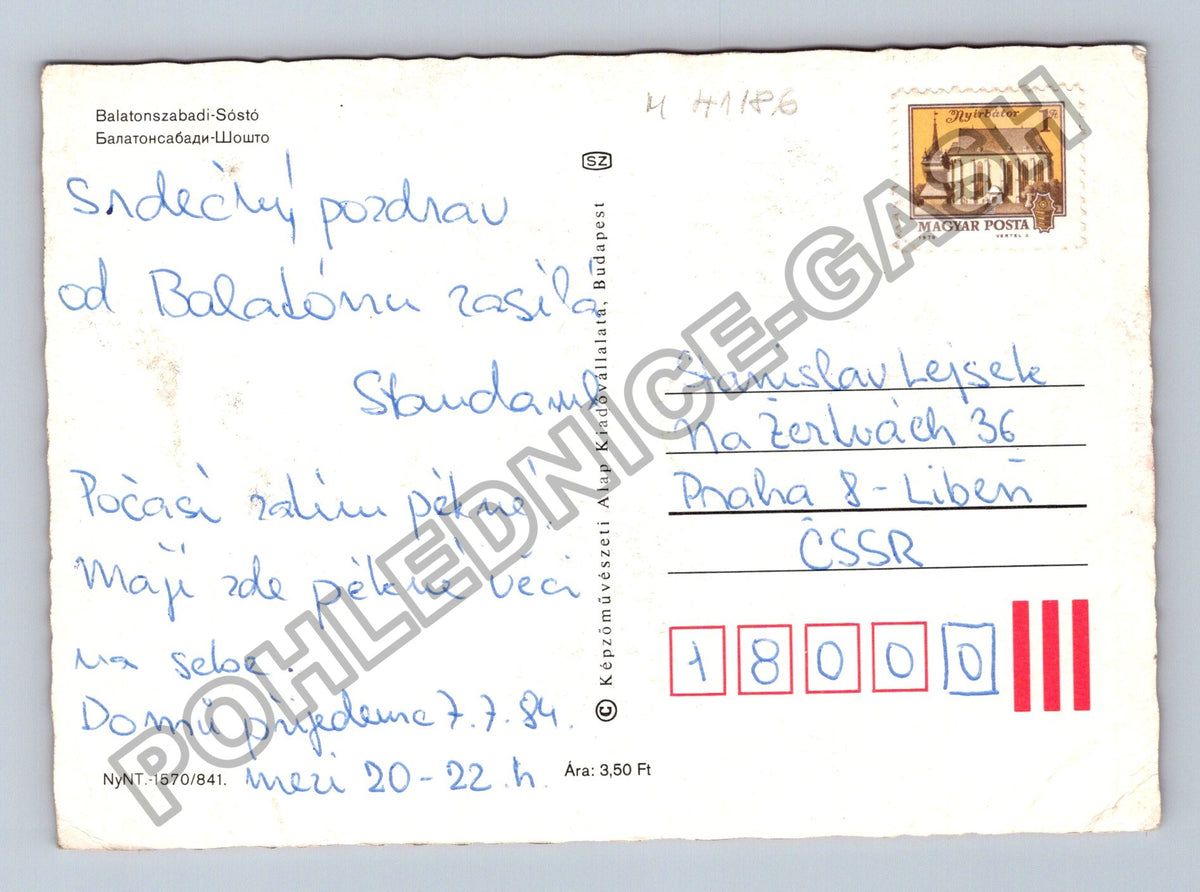 Balatonszabadi-Sóstó
Балатонсабади-Шошто
M 41/86
SZ
Nyírbátor
1 Ft
MAGYAR POSTA
1979 VERTEL J.
Srdečný pozdrav
od Balatónu zasílá
Standa ml.
Počasí zatím pěkné.
Mají zde pěkné věci
na sebe.
Domů přijedeme 7.7.84.
mezi 20-22.h.
Stanislav Lejsek
Na Žertvách 36
Praha 8-Libeň
ČSSR
18000
© Képzőművészeti Alap Kiadóvállalata, Budapest
NyNT.-1570/841.
Ára: 3,50 Ft
POHLEDNICE-GASH